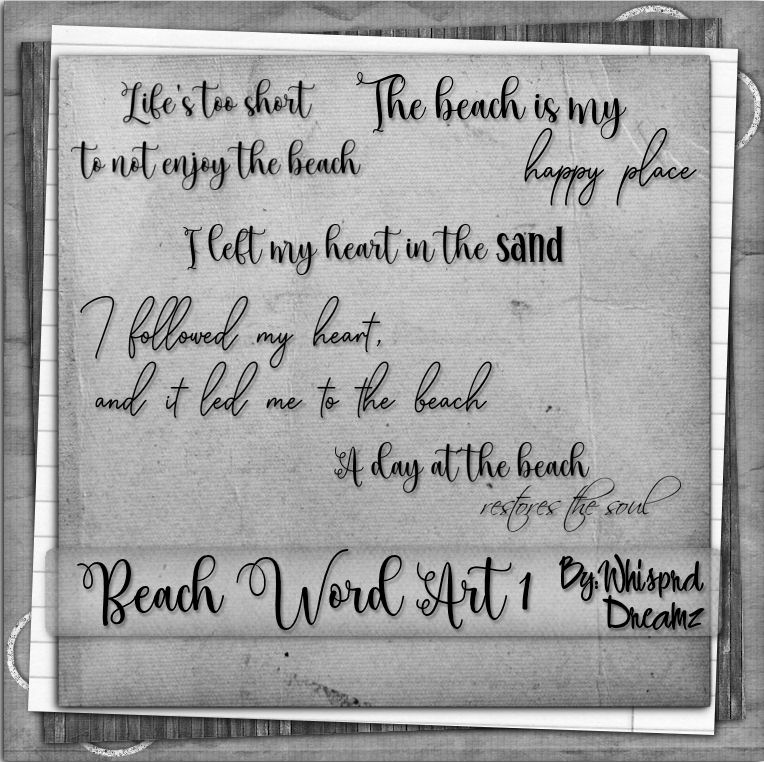 Life's too short
to not enjoy the beach
The beach is my
happy place
I left my heart in the sand
I followed my heart,
and it led me to the beach
A day at the beach
restores the soul
Beach Word Art 1
By: Whispnd
Dreamz